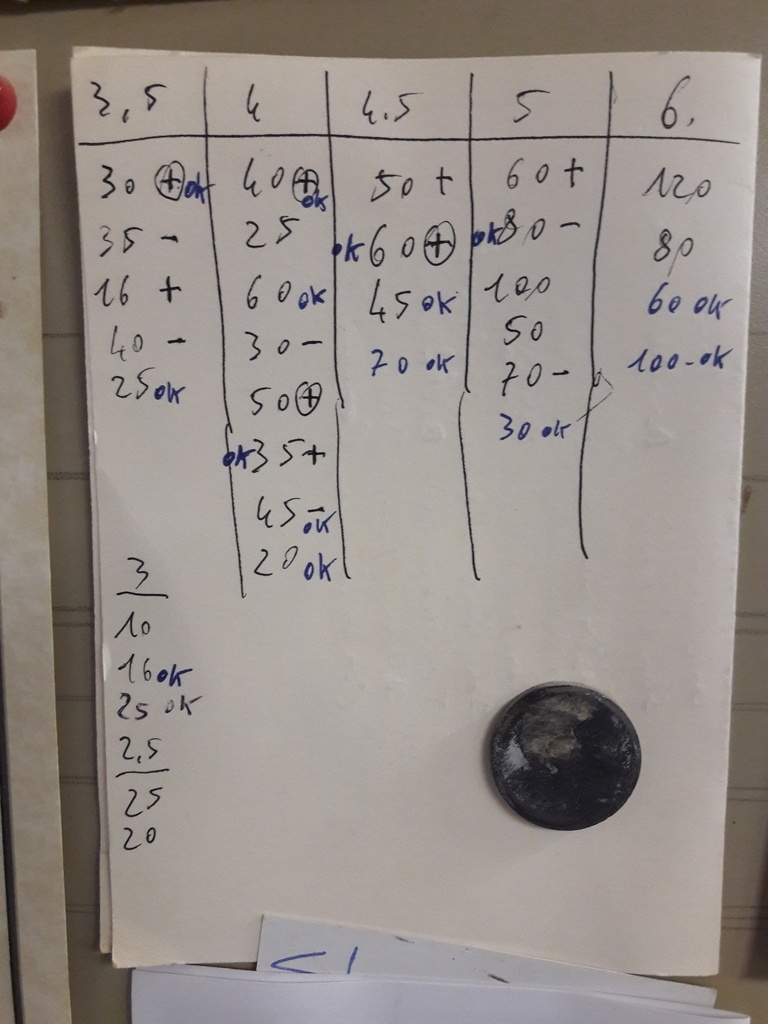 3,5 4 4.5 5 6.
30 ⊕ ok 40 ⊕ ok 50 + 60 + 120
35 - 25 ok 60 ⊕ ok 80 - 80
16 + 60 ok 45 ok 100 60 ok
40 - 30 - 70 ok 50 100 - ok
25 ok 50 ⊕ 70 -
ok 35 + 30 ok
45 - ok
20 ok
3
10
16 ok
25 ok
2,5
25
20